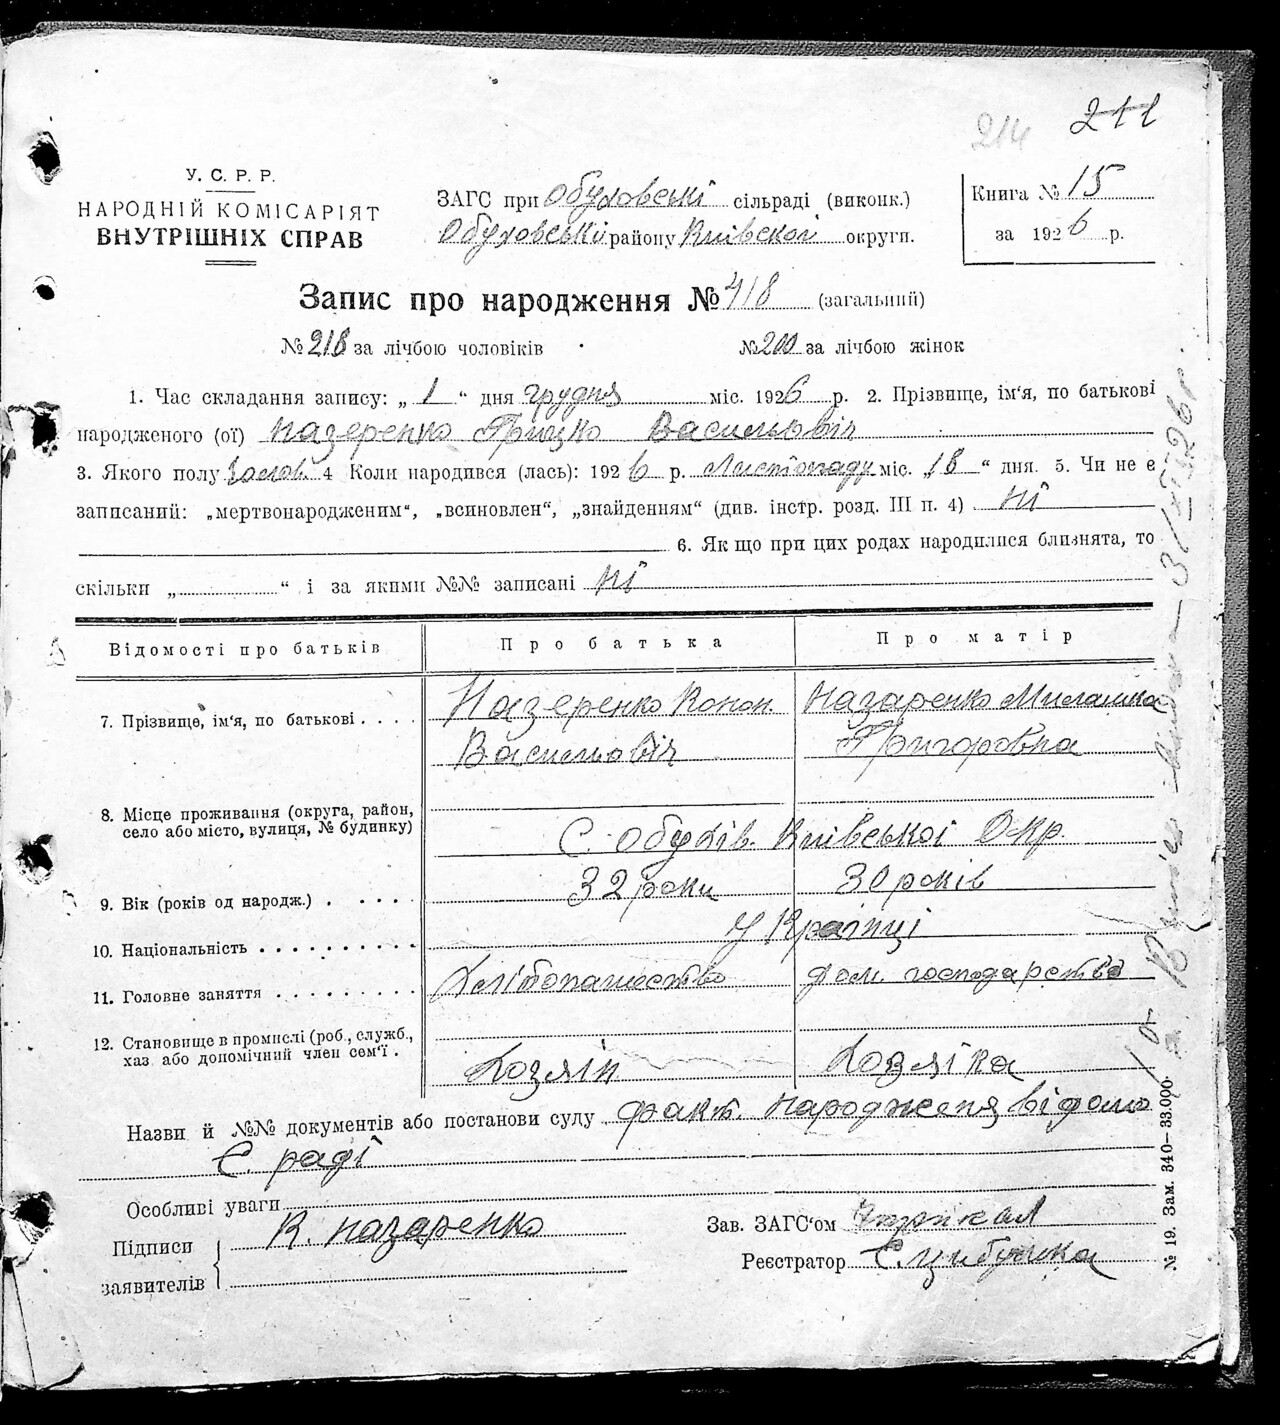 214 211
У. С. Р. Р.
НАРОДНІЙ КОМІСАРІЯТ
ВНУТРІШНІХ СПРАВ
ЗАГС при Обуховські сільраді (виконк.)
Обуховський району Київской округи.
Книга № 15
за 1926 р.
Запис про народження № 418 (загальний)
№ 218 за лічбою чоловіків № 200 за лічбою жінок
1. Час складання запису: „ 1 “ дня грудня міс. 1926 р. 2. Прізвище, ім‘я, по батькові
народженого (ої) Назеренко Грицко Васильовіч
3. Якого полу чолов. 4 Коли народився (лась): 1926 р. Листопаду міс. „18 “ дня. 5. Чи не є
записаний: „мертвонародженим“, „всиновлен“, „знайденням“ (див. інстр. розд. III п. 4) Ні
6. Як що при цих родах народилися близнята, то
скільки „ “ і за якими №№ записані Ні
Відомості про батьків Про батька Про матір
7. Прізвище, ім‘я, по батькові . . . . Назеренко Конон. Васильовіч Назаренко Миланка Григоровна
8. Місце проживання (округа, район,
село або місто, вулиця, № будинку) С. Обухів. Київської Окр.
9. Вік (років од народж.) . . . . . 32 роки 30 років
10. Національність . . . . . . . . . . Українці
11. Головне заняття . . . . . . . . . Хлібопашество дом. господарство
12. Становище в промислі (роб., служб.,
хаз. або допомічний член сем‘ї . Хозяін Хозяіка
Назви й №№ документів або постанови суду факт народженя відомо
С. раді
Особливі уваги
Підписи
заявителів К. Назаренко
Зав. ЗАГС‘ом
Реєстратор Є. Цибулька
№ 19. Зам. 340—33.000.